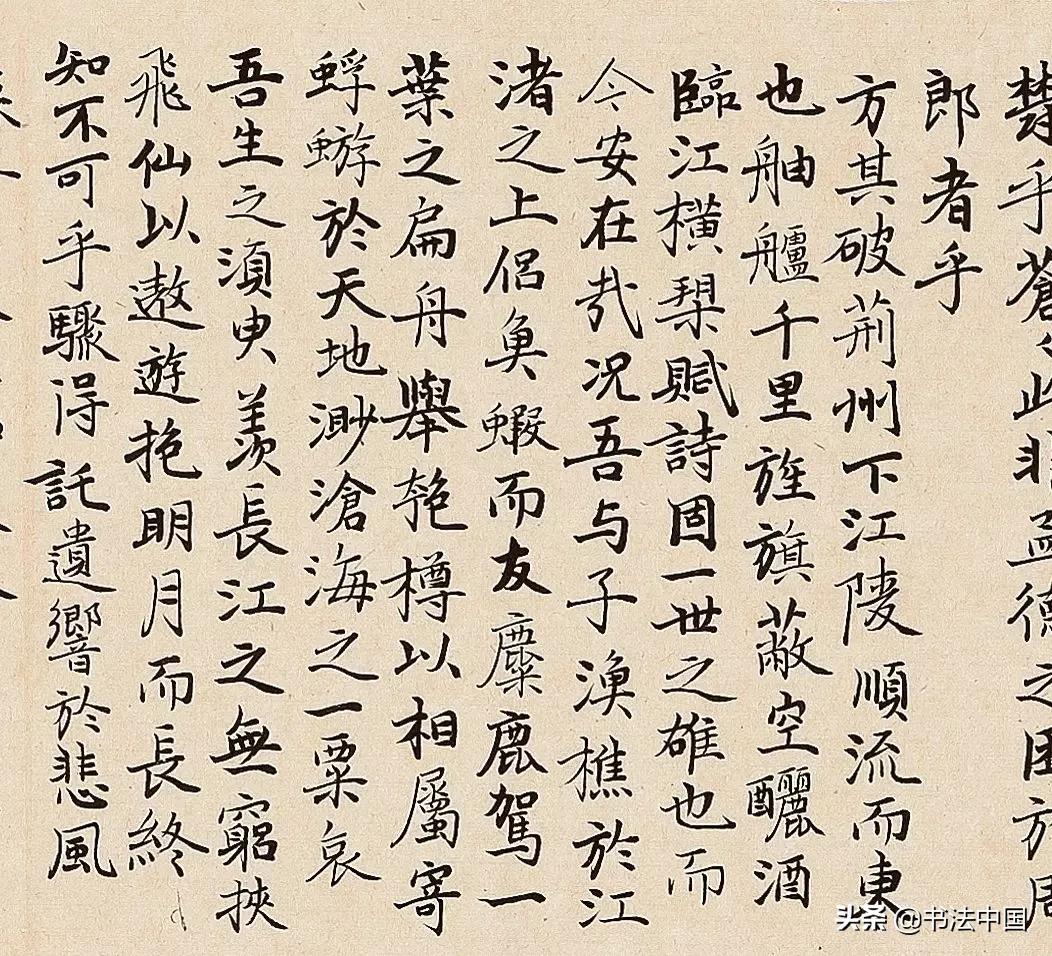 欝乎蒼〻此非孟德之困於周
郎者乎
方其破荊州下江陵順流而東
也舳艫千里旌旗蔽空釃酒
臨江橫槊賦詩固一世之雄也而
今安在哉况吾与子漁樵於江
渚之上侶魚蝦而友麋鹿駕一
葉之扁舟舉匏樽以相屬寄
蜉蝣於天地渺滄海之一粟哀
吾生之須臾羨長江之無窮挾
飛仙以遨遊抱明月而長終
知不可乎驟得託遺響於悲風
头条 @书法中国